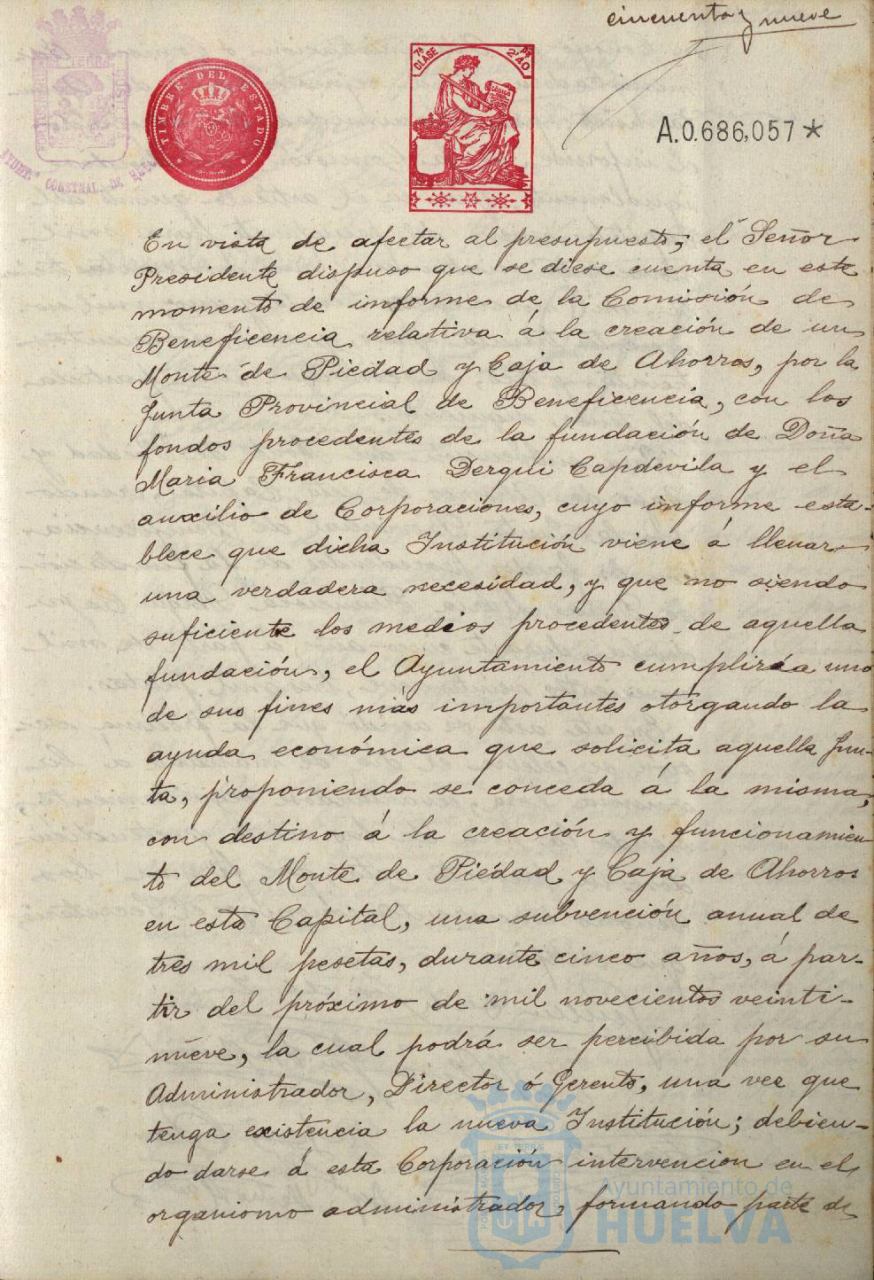 cincuenta y nueve
TIMBRE DEL ESTADO
7ª CLASE
2'40 PS
A.0.686,057 *
CONSTNAL. DE
En vista de afectar al presupuesto, el Señor
Presidente dispuso que se diese cuenta en este
momento de informe de la Comisión de
Beneficencia relativa á la creación de un
Monte de Piedad y Caja de Ahorros, por la
Junta Provincial de Beneficencia, con los
fondos procedentes de la fundación de Doña
Maria Francisca Derqui Capdevila y el
auxilio de Corporaciones, cuyo informe esta-
blece que dicha Institución viene á llenar
una verdadera necesidad, y que no siendo
suficiente los medios procedentes de aquella
fundación, el Ayuntamiento cumpliría uno
de sus fines más importantes otorgando la
ayuda económica que solicita aquella Jun-
ta, proponiendo se conceda á la misma,
con destino á la creación y funcionamien
to del Monte de Piedad y Caja de Ahorros
en esta Capital, una subvención anual de
tres mil pesetas, durante cinco años, á par-
tir del próximo de mil novecientos veinti-
nueve, la cual podrá ser percibida por su
Administrador, Director ó Gerente, una vez que
tenga existencia la nueva Institución; debien-
do darse á esta Corporación intervencion en el
organismo administrador, formando parte de
Ayuntamiento de
HUELVA